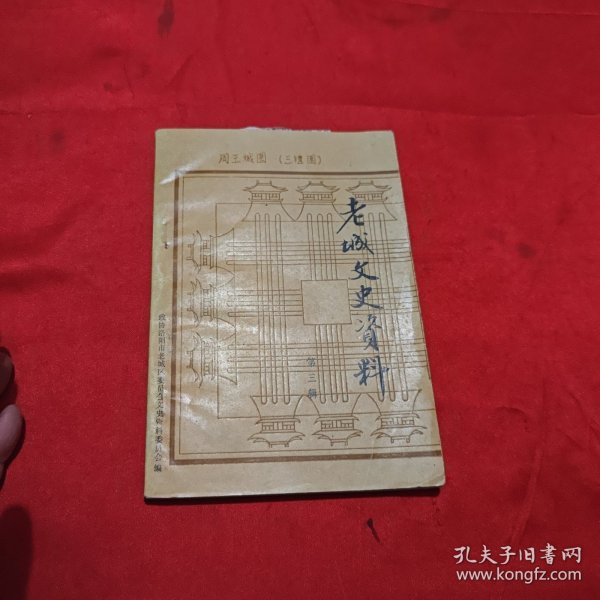 周王城图 (三禮图)
老城文史資料
第三辑
政协洛阳市老城区委员会文史资料委员会编
孔夫子旧书网
www.kongfz.com